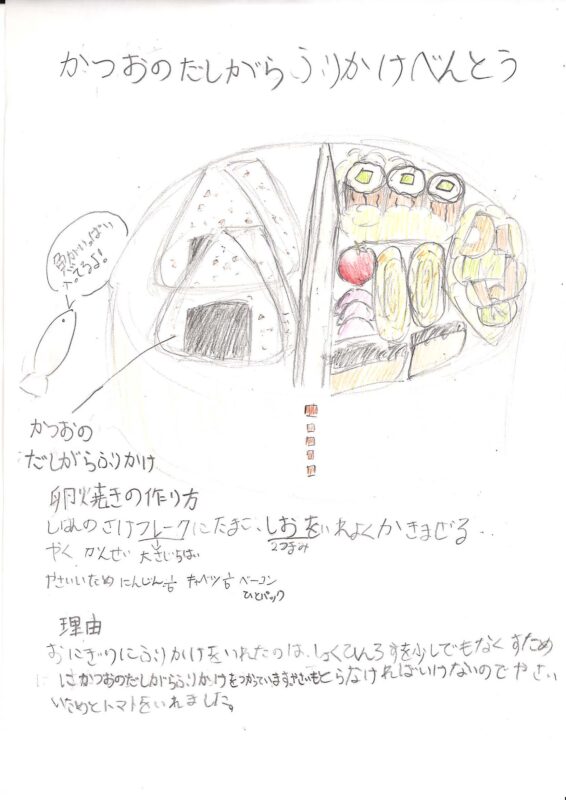 かつおのだしがらふりかけべんとう
魚がいっぱい
入ってるよ!
かつおの
だしがらふりかけ
卵焼きの作り方
しはんのさけフレークにたまご、しおをいれよくかきまぜる..
やく かんせい 大さじ1ぱい 2つまみ
やさいいため にんじん キャベツ ベーコン
ひとパック
理由
おにぎりにふりかけをいれたのは、しょくひんろすを少しでもなくすため
にかつおのだしがらふりかけをつかっていますやさいもとらなければいけないのでやさい
いためとトマトをいれました。